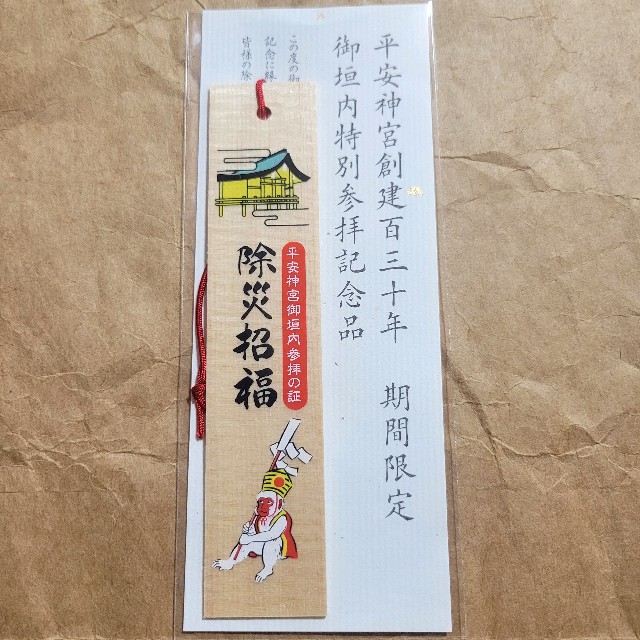 平安神宮創建百三十年 期間限定
御垣内特別参拝記念品
この度の御
記念に縁
皆様の除
平安神宮御垣内参拝の証
除災招福